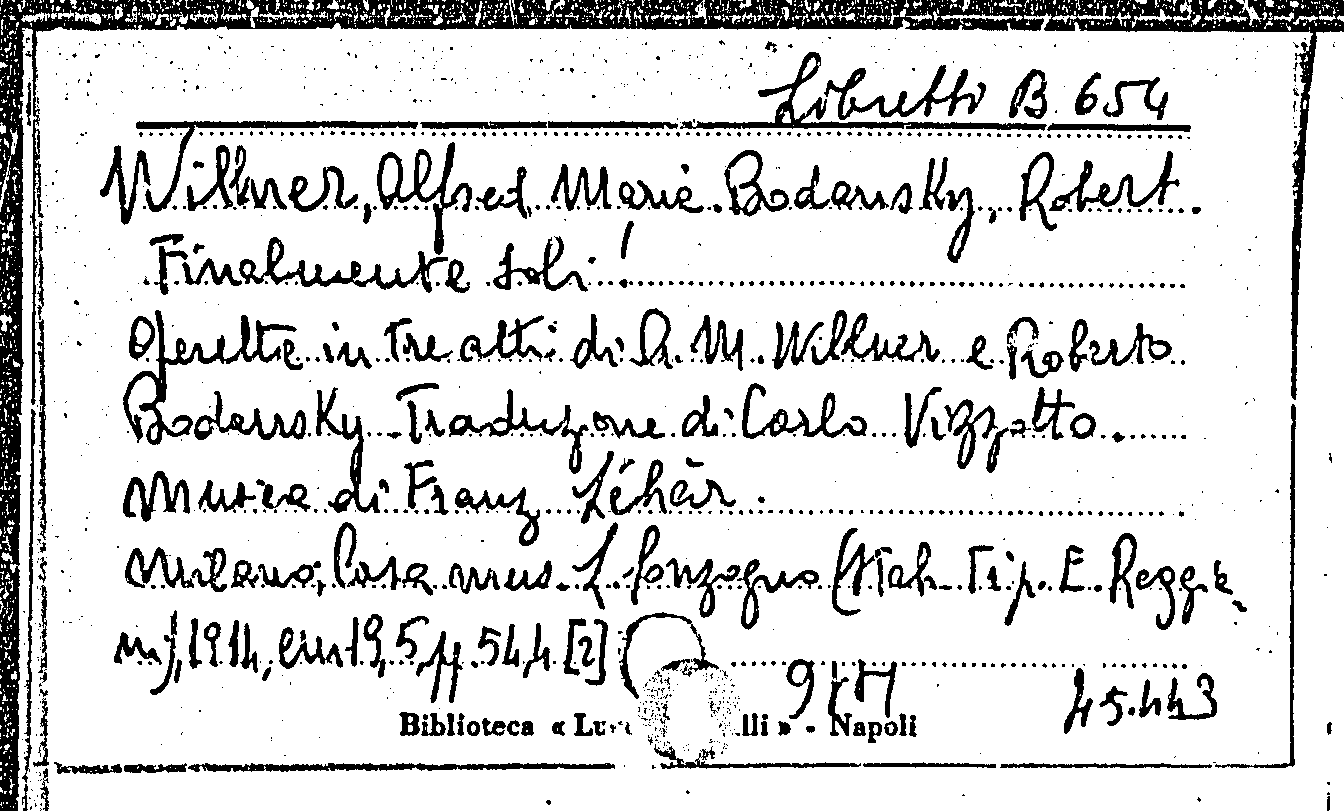 Libretti B 654
Willner, Alfred Marie. Bodansky, Robert.
Finalmente soli!
Operetta in tre atti di A. M. Willner e Roberto
Bodansky. Traduzione di Carlo Vizzotto.
Musica di Franz Léhàr.
Milano, Casa mus. L. Sonzogno (Stab. Tip. E. Reggia-
ni), 1914, cm 19,5, pp. 54,4 [2]
45.443
Biblioteca « Lu lli » - Napoli